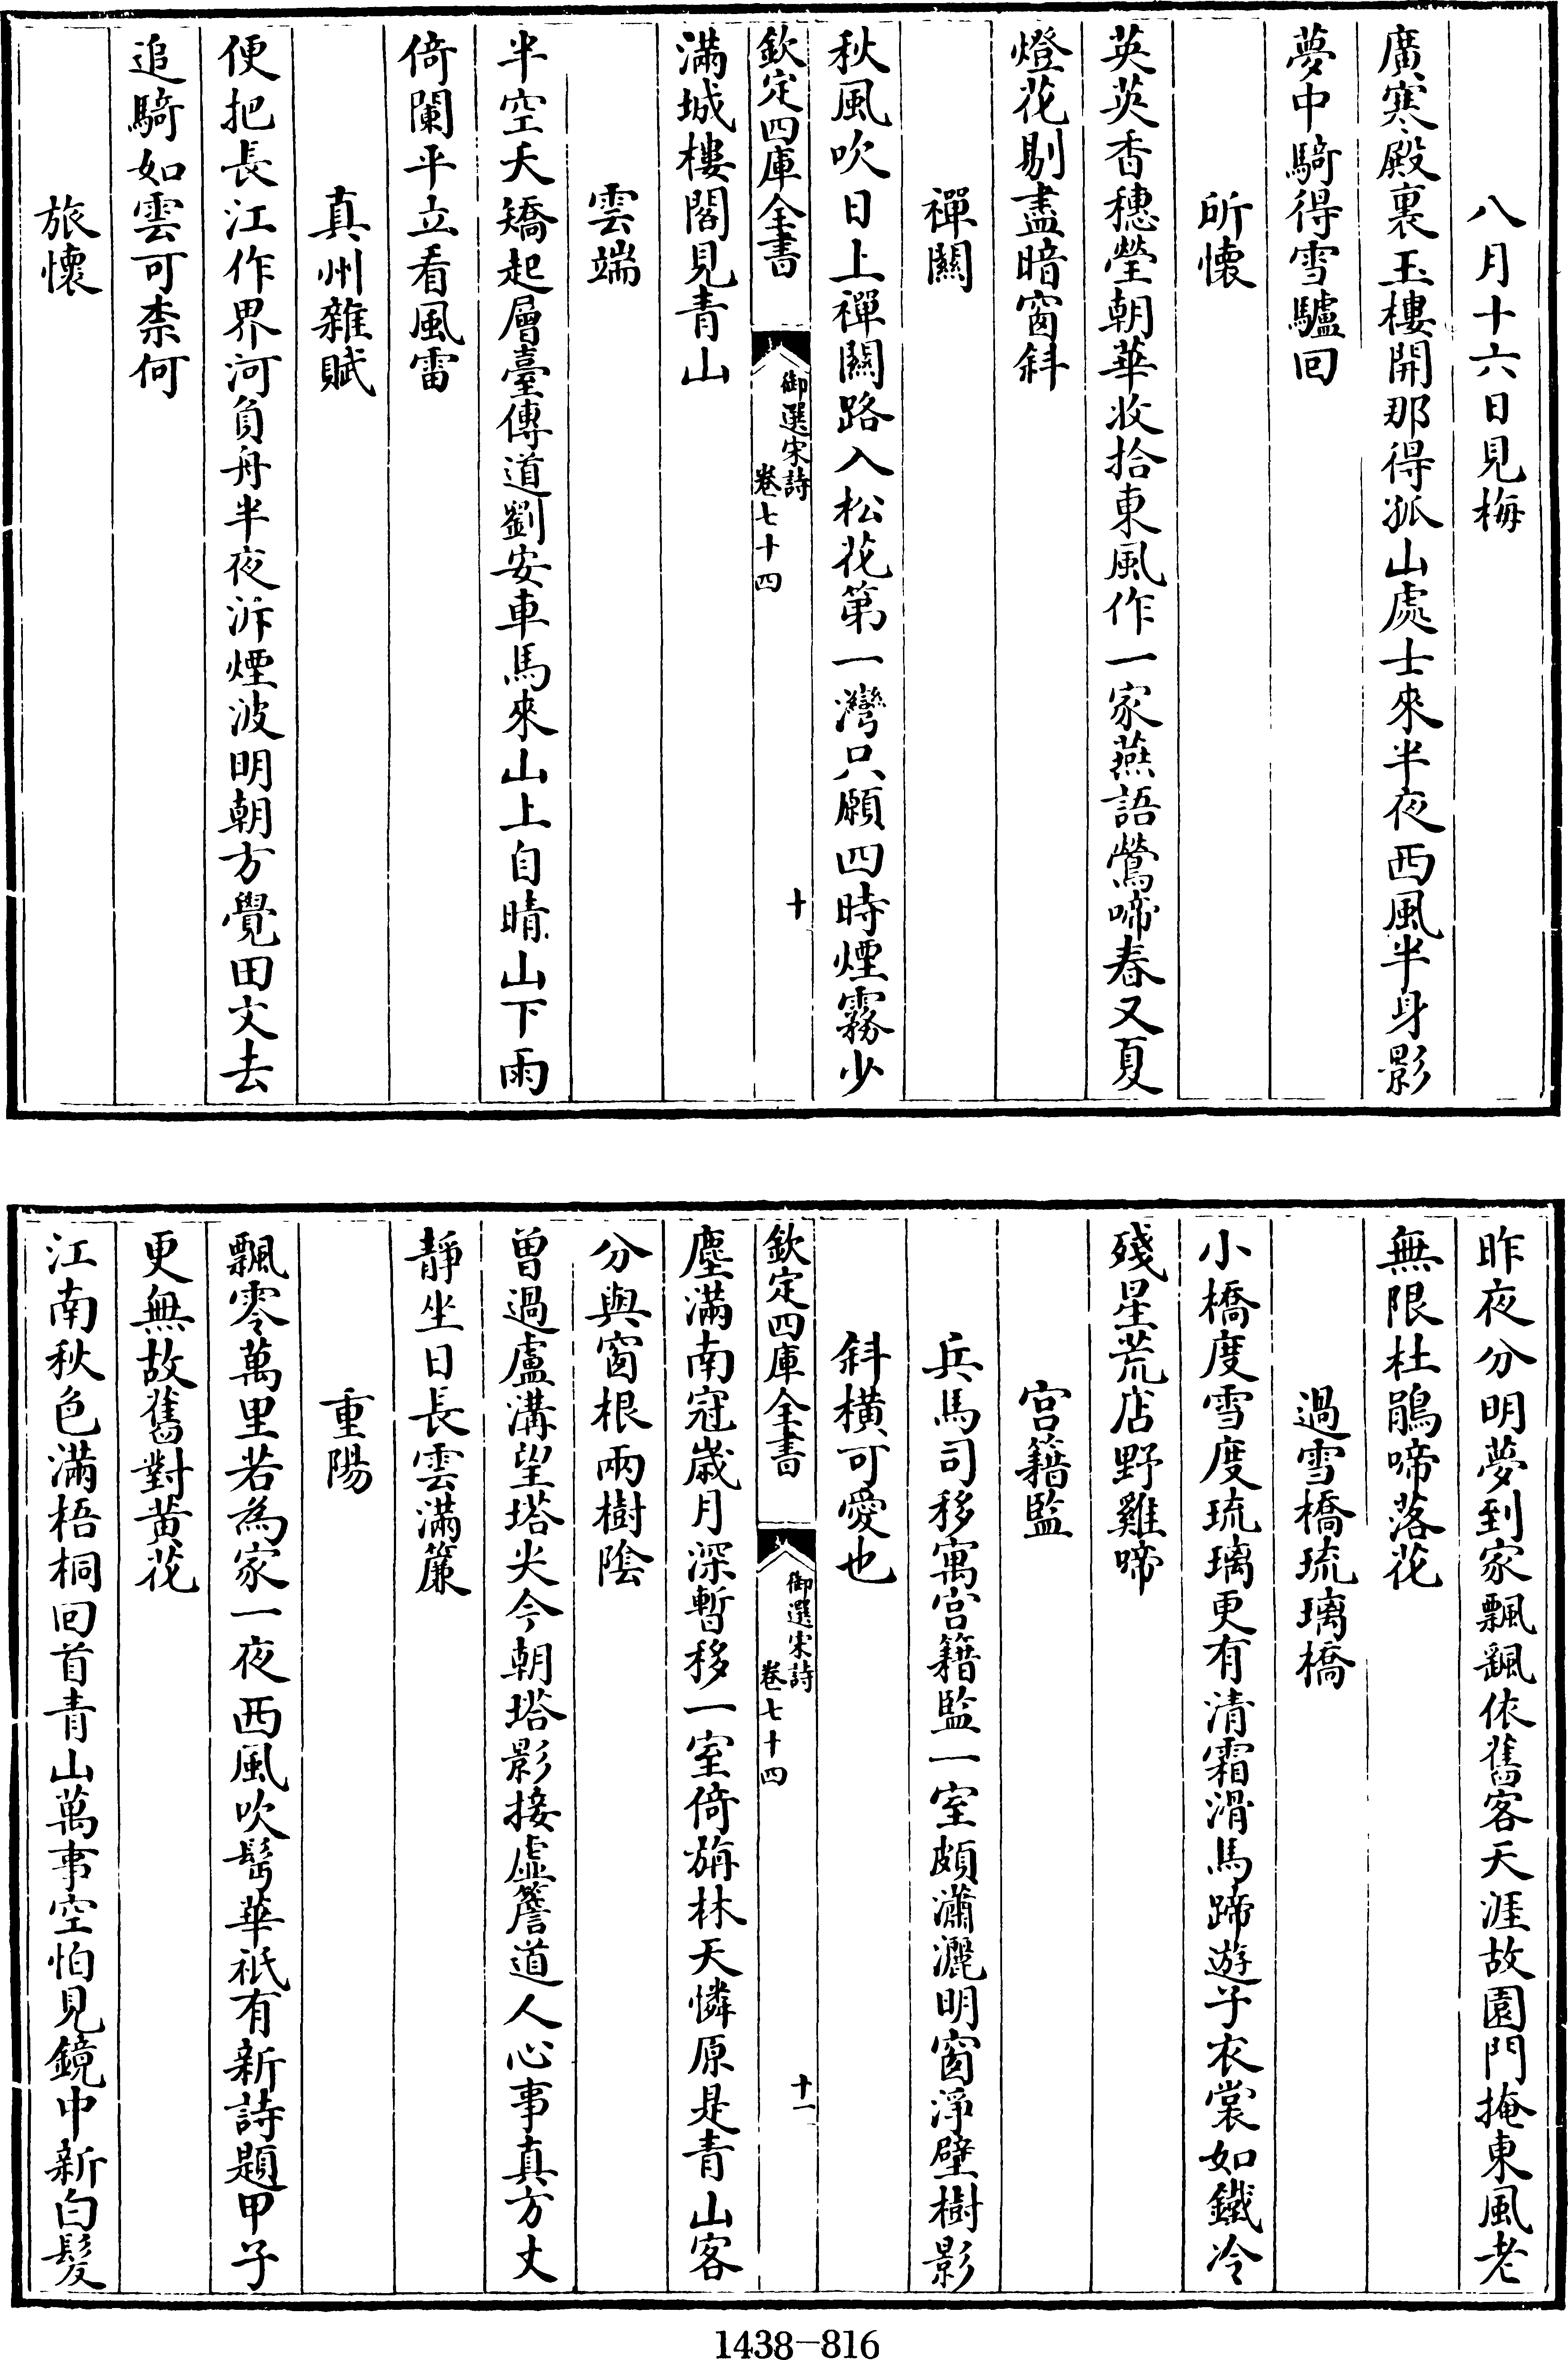 八月十六日見梅
廣寒殿裏玉樓開那得孤山處士來半夜西風半身影
夢中騎得雪驢回
所懷
英英香穗瑩朝華收拾東風作一家燕語鶯啼春又夏
燈花剔盡暗窗斜
禪關
秋風吹日上禪關路入松花第一灣只願四時煙霧少
欽定四庫全書
御選宋詩
卷七十四
十
滿城樓閣見青山
雲端
半空夭矯起層臺傳道劉安車馬來山上自晴山下雨
倚闌平立看風雷
真州雜賦
便把長江作界河負舟半夜泝煙波明朝方覺田文去
追騎如雲可柰何
旅懷
昨夜分明夢到家飄颻依舊客天涯故園門掩東風老
無限杜鵑啼落花
過雪橋琉璃橋
小橋度雪度琉璃更有清霜滑馬蹄遊子衣裳如鐵冷
殘星荒店野雞啼
宫籍監
兵馬司移寓宫籍監一室頗瀟灑明窗淨壁樹影
斜橫可愛也
欽定四庫全書
御選宋詩
卷七十四
十一
塵滿南冠歲月深暫移一室倚旃林天憐原是青山客
分與窗根兩樹陰
曾過盧溝望塔尖今朝塔影接虛簷道人心事真方丈
靜坐日長雲滿簾
重陽
飄零萬里若為家一夜西風吹髩華祇有新詩題甲子
更無故舊對黃花
江南秋色滿梧桐回首青山萬事空怕見鏡中新白髮
1438-816